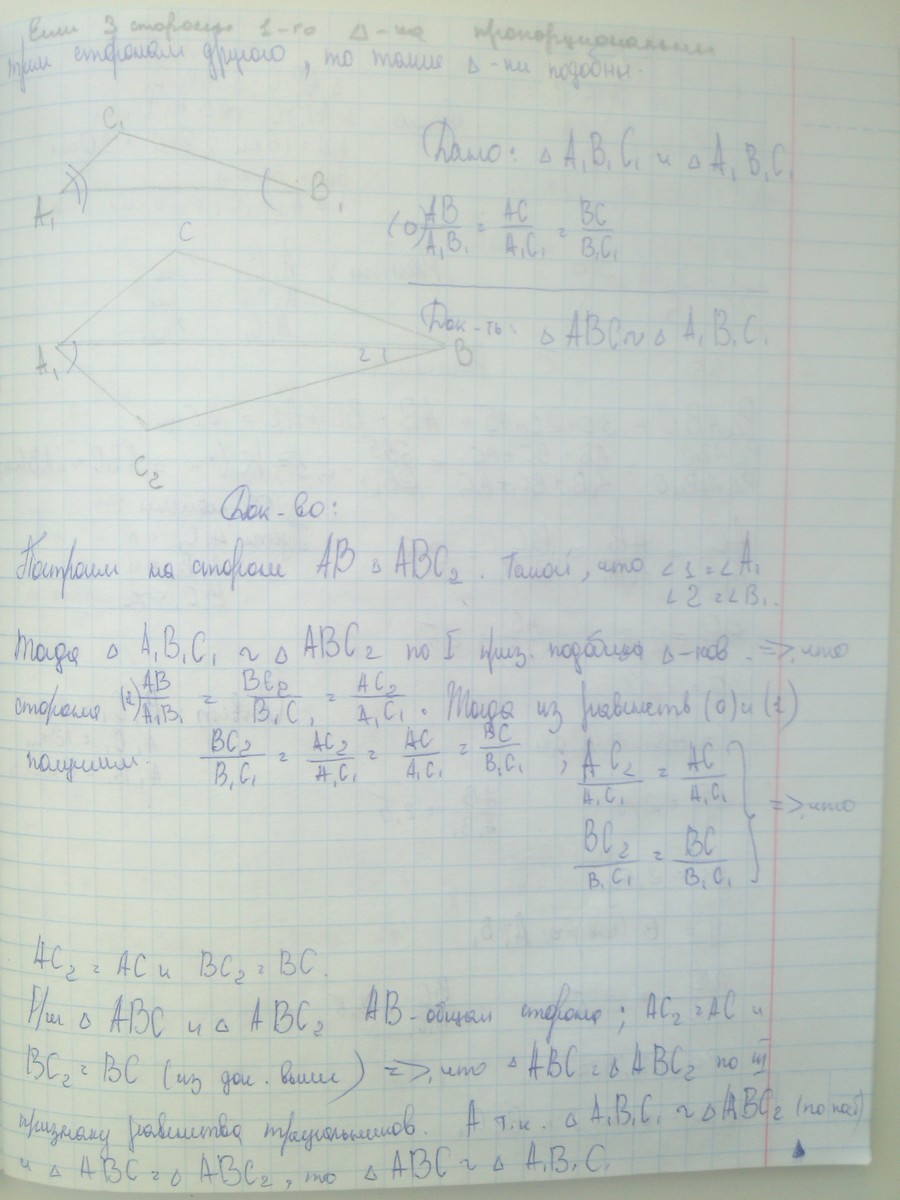 Если 3 стороны 1-го Δ-ка пропорциональны
трём сторонам другого, то такие Δ-ки подобны.
C₁
A₁
B₁
Дано: Δ A₁B₁C₁ и Δ A₁B₁C₁
(0) AB/A₁B₁ = AC/A₁C₁ = BC/B₁C₁
Док-ть: Δ ABC ~ Δ A₁B₁C₁
C
A₁
2
B
C₂
Док-во:
Построим на стороне AB Δ ABC₂. Такой, что ∠1=∠A₁
∠2=∠B₁.
Тогда Δ A₁B₁C₁ ~ Δ ABC₂ по I приз. подобия Δ-ков. => что
стороны (1) AB/A₁B₁ = BC₂/B₁C₁ = AC₂/A₁C₁. Тогда из равенств (0) и (1)
получим. BC₂/B₁C₁ = AC₂/A₁C₁ = AC/A₁C₁ = BC/B₁C₁ ; AC₂/A₁C₁ = AC/A₁C₁
BC₂/B₁C₁ = BC/B₁C₁ } =>, что
AC₂ = AC и BC₂ = BC.
Р/м Δ ABC и Δ ABC₂ AB-общая сторона; AC₂ = AC и
BC₂ = BC (из док. выше) =>, что Δ ABC = Δ ABC₂ по III
признаку равенства треугольников. А т.к. Δ A₁B₁C₁ ~ Δ ABC₂ (по
и Δ ABC = Δ ABC₂, то Δ ABC ~ Δ A₁B₁C₁